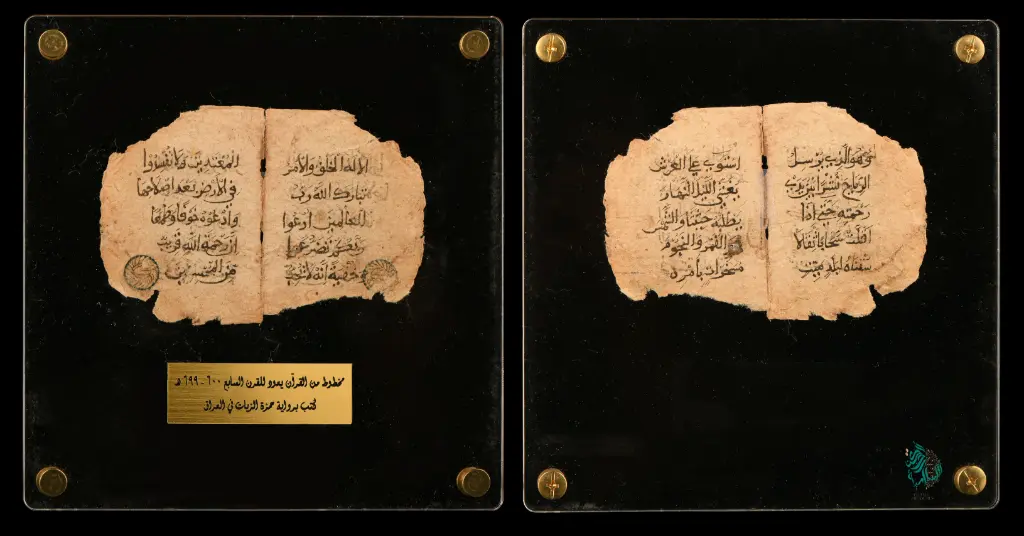 الا له الخلق والأمر
تبارك الله رب
العالمين ادعوا
ربكم تضرعا و
خفية انه لا يحب
المعتدين ولا تفسدوا
في الأرض بعد اصلاحها
وادعوه خوفا وطمعا
ان رحمة الله قريب
من المحسنين
مخطوط من القرآن يعود للقرن السابع ٦٠٠ - ٦٩٩ هـ
كتب برواية حمزة الزيات في العراق
وهو الذي يرسل
الرياح نشرا بين يدي
رحمته حتى اذا
اقلت سحابا ثقالا
سقناه لبلد ميت
استوى على العرش
يغشي الليل النهار
يطلبه حثيثا والشمس
والقمر والنجوم
مسخرات بأمره